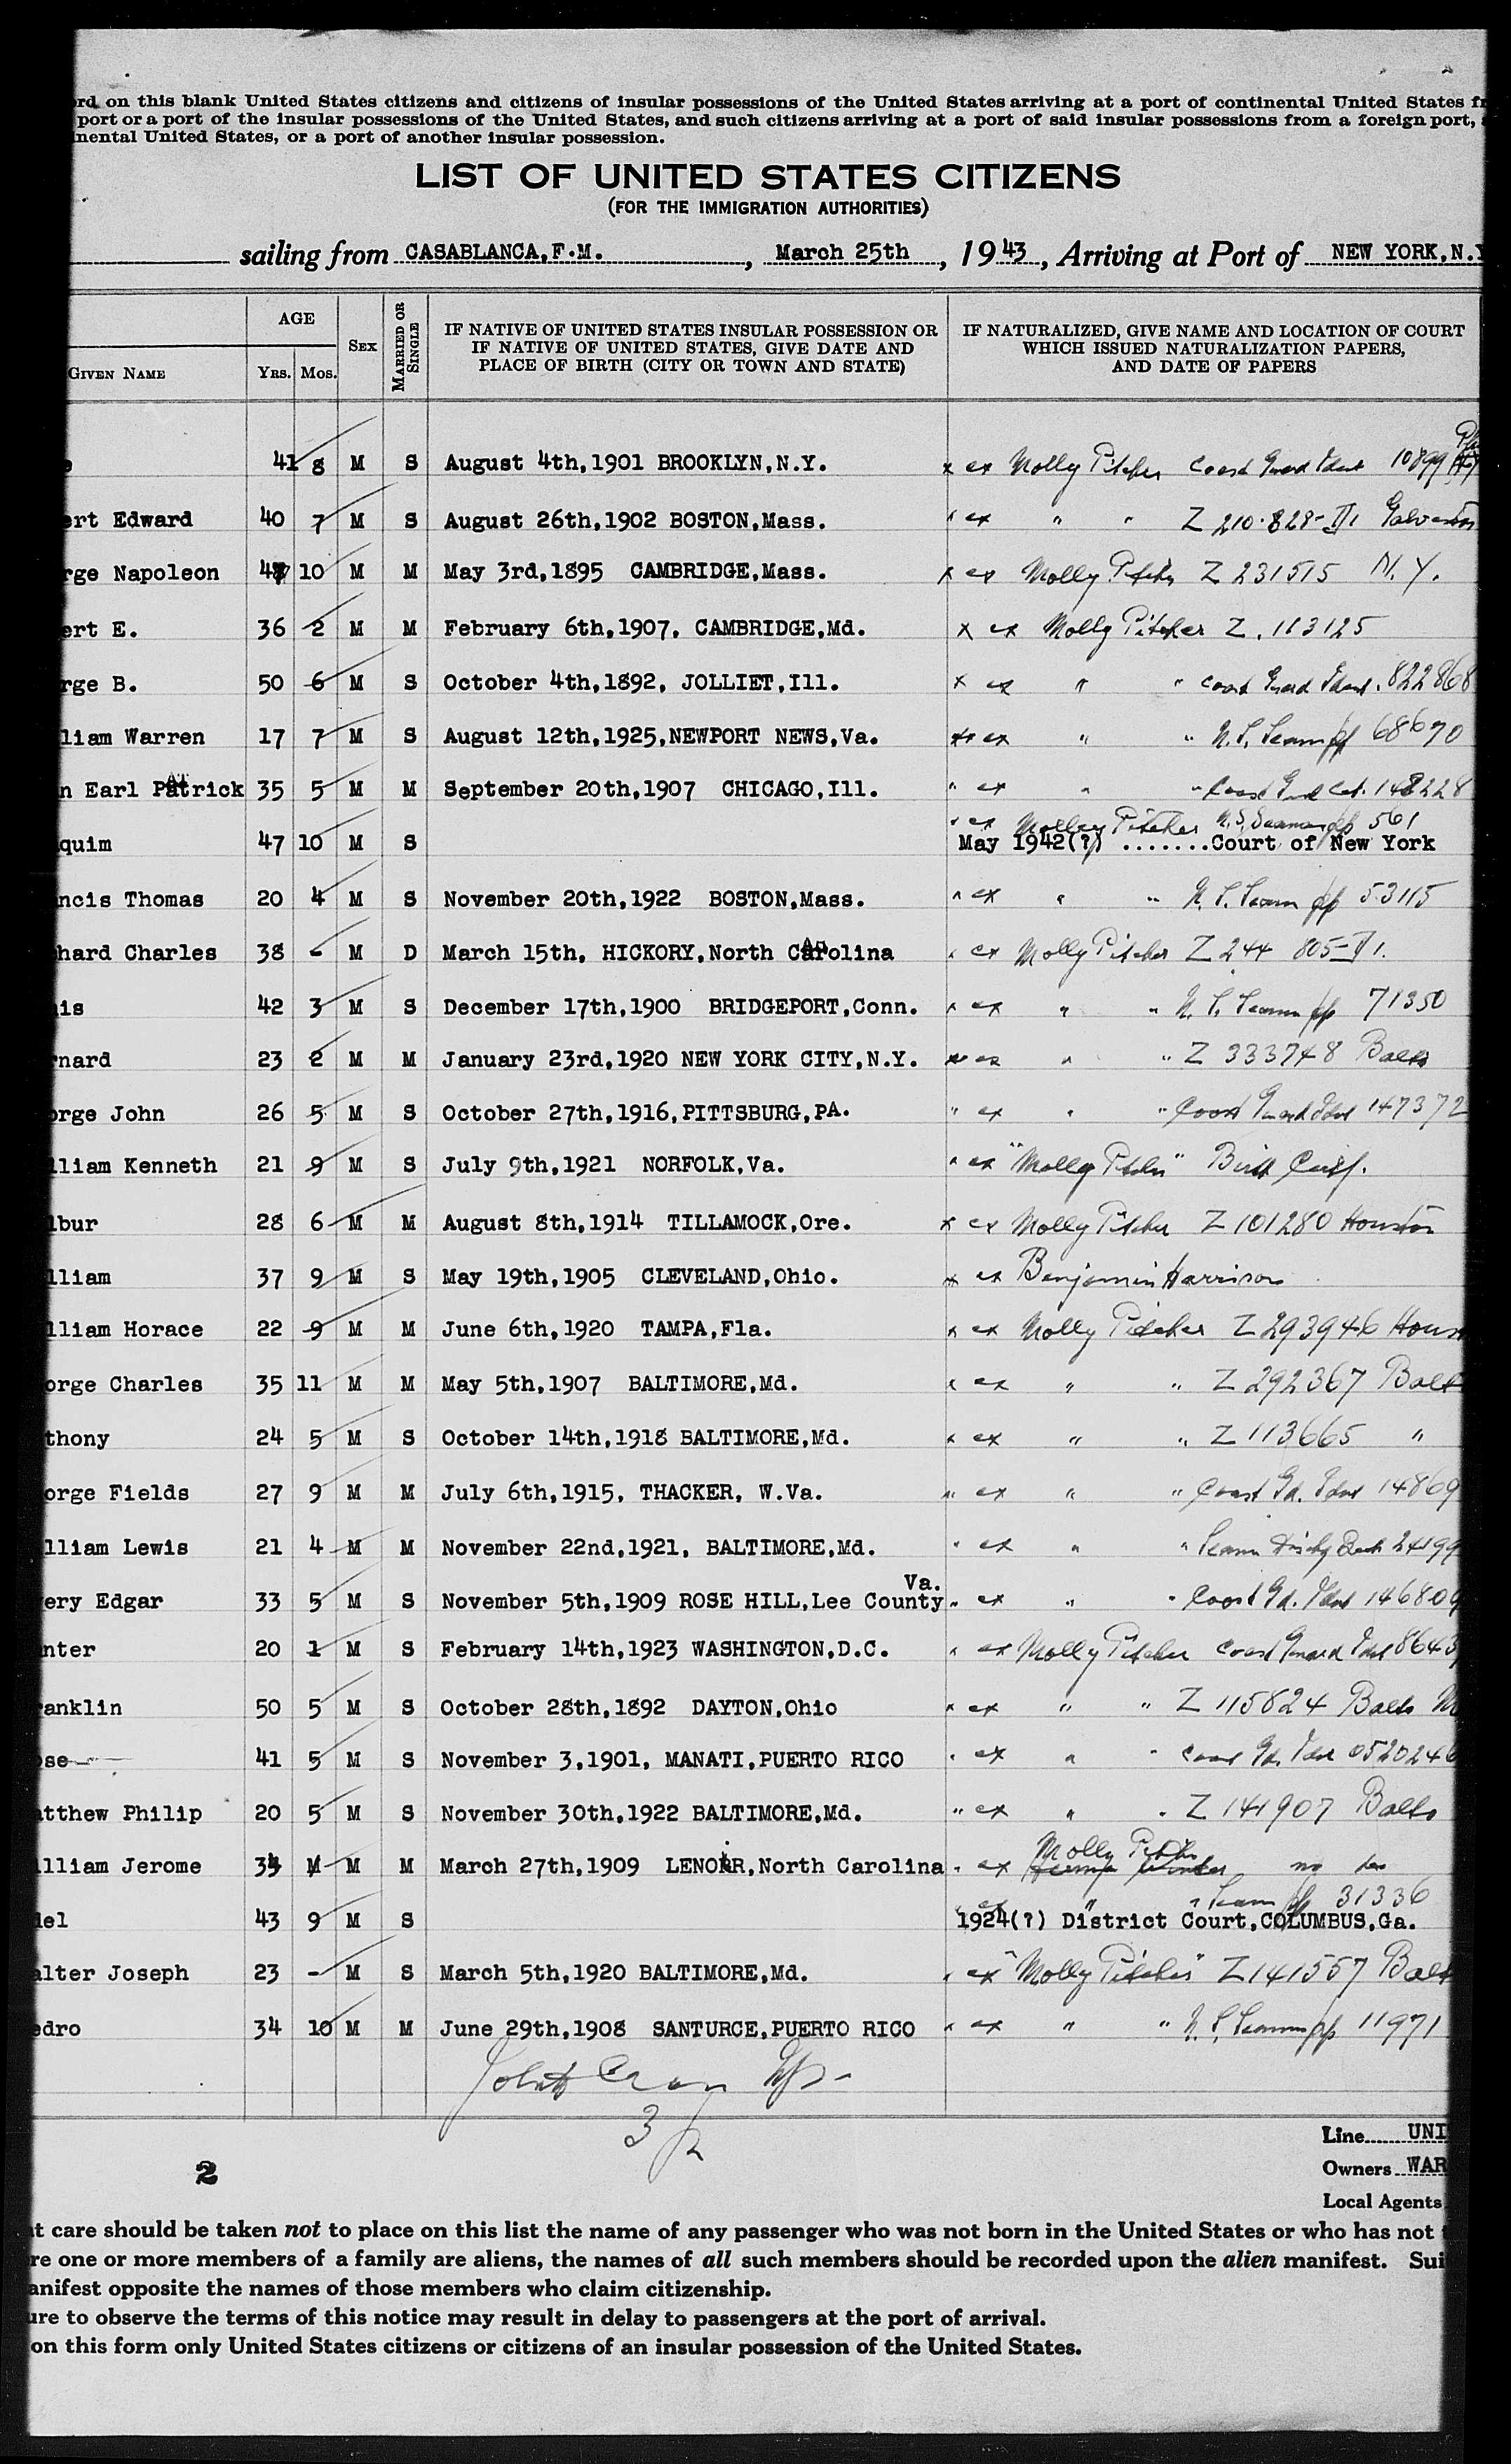 rd on this blank United States citizens and citizens of insular possessions of the United States arriving at a port of continental United States fr
port or a port of the insular possessions of the United States, and such citizens arriving at a port of said insular possessions from a foreign port,
nental United States, or a port of another insular possession.
LIST OF UNITED STATES CITIZENS
(FOR THE IMMIGRATION AUTHORITIES)
sailing from CASABLANCA,F.M. , March 25th , 1943 , Arriving at Port of NEW YORK,N.Y
GIVEN NAME AGE YRS. MOS. SEX MARRIED OR SINGLE IF NATIVE OF UNITED STATES INSULAR POSSESSION OR IF NATIVE OF UNITED STATES, GIVE DATE AND PLACE OF BIRTH (CITY OR TOWN AND STATE) IF NATURALIZED, GIVE NAME AND LOCATION OF COURT WHICH ISSUED NATURALIZATION PAPERS, AND DATE OF PAPERS
41 8 M S August 4th,1901 BROOKLYN,N.Y. x ex Molly Pitcher Coast Guard Ident 10899
ert Edward 40 7 M S August 26th,1902 BOSTON,Mass. " ex " " Z 210-828- Galveston
rge Napoleon 47 10 M M May 3rd,1895 CAMBRIDGE,Mass. x ex Molly Pitcher Z 231515 N.Y.
ert E. 36 2 M M February 6th,1907, CAMBRIDGE,Md. x ex Molly Pitcher Z.113125
rge B. 50 6 M S October 4th,1892, JOLLIET,Ill. x ex " " Coast Guard Ident. 822868
liam Warren 17 7 M S August 12th,1925,NEWPORT NEWS,Va. ex " " U.S. Seaman pp 68670
n Earl Patrick 35 5 M M September 20th,1907 CHICAGO,Ill. " ex " "
" ex Molley Pitcher U.S. Seaman pp 561
quim 47 10 M S May 1942(?) .......Court of New York
ncis Thomas 20 4 M S November 20th,1922 BOSTON,Mass. " ex " " U.S. Seaman pp 53115
hard Charles 38 - M D March 15th, HICKORY,North Carolina " ex Molly Pitcher Z 244 805
is 42 3 M S December 17th,1900 BRIDGEPORT,Conn. x ex " " U.S. Seaman pp 71350
rnard 23 2 M M January 23rd,1920 NEW YORK CITY,N.Y. ex " " Z 333748 Balto
orge John 26 5 M S October 27th,1916,PITTSBURG,PA. " ex " " Coast Guard Ident 147372
lliam Kenneth 21 9 M S July 9th,1921 NORFOLK,Va. " ex "Molly Pitcher" Birth Certf.
lbur 28 6 M M August 8th,1914 TILLAMOCK,Ore. x ex Molly Pitcher Z 101280 Houston
lliam 37 9 M S May 19th,1905 CLEVELAND,Ohio. x ex Benjamin Harrison
lliam Horace 22 9 M M June 6th,1920 TAMPA,Fla. x ex Molly Pitcher Z 293946 Hous
orge Charles 35 11 M M May 5th,1907 BALTIMORE,Md. x ex " " Z 292367 Balt
thony 24 5 M S October 14th,1918 BALTIMORE,Md. x ex " " Z 113665 "
orge Fields 27 9 M M July 6th,1915, THACKER, W.Va. " ex " " Coast Gd. Ident 14869
lliam Lewis 21 4 M M November 22nd,1921, BALTIMORE,Md. " ex " "
ery Edgar 33 5 M S November 5th,1909 ROSE HILL,Lee County Va. " ex " " Coast Gd. Ident 146809
nter 20 1 M S February 14th,1923 WASHINGTON,D.C. " ex Molly Pitcher Coast Guard Ident 8643
ranklin 50 5 M S October 28th,1892 DAYTON,Ohio x ex " " Z 115824 Balto M
ose 41 5 M S November 3,1901, MANATI,PUERTO RICO " ex " " Coast Gd. Ident 0520246
atthew Philip 20 5 M S November 30th,1922 BALTIMORE,Md. " ex " " Z 141907 Balto
illiam Jerome 34 M M March 27th,1909 LENOIR,North Carolina " ex Molly Pitcher no
" ex " " Seam pp 31336
del 43 9 M S 1924(?) District Court,COLUMBUS,Ga.
alter Joseph 23 - M S March 5th,1920 BALTIMORE,Md. " ex "Molly Pitcher" Z 141557 Balt
edro 34 10 M M June 29th,1908 SANTURCE,PUERTO RICO " ex " " U.S. Seaman pp 11971
3
Line UNI
2
Owners WAR
Local Agents
t care should be taken not to place on this list the name of any passenger who was not born in the United States or who has not
re one or more members of a family are aliens, the names of all such members should be recorded upon the alien manifest. Sui
anifest opposite the names of those members who claim citizenship.
ure to observe the terms of this notice may result in delay to passengers at the port of arrival.
on this form only United States citizens or citizens of an insular possession of the United States.